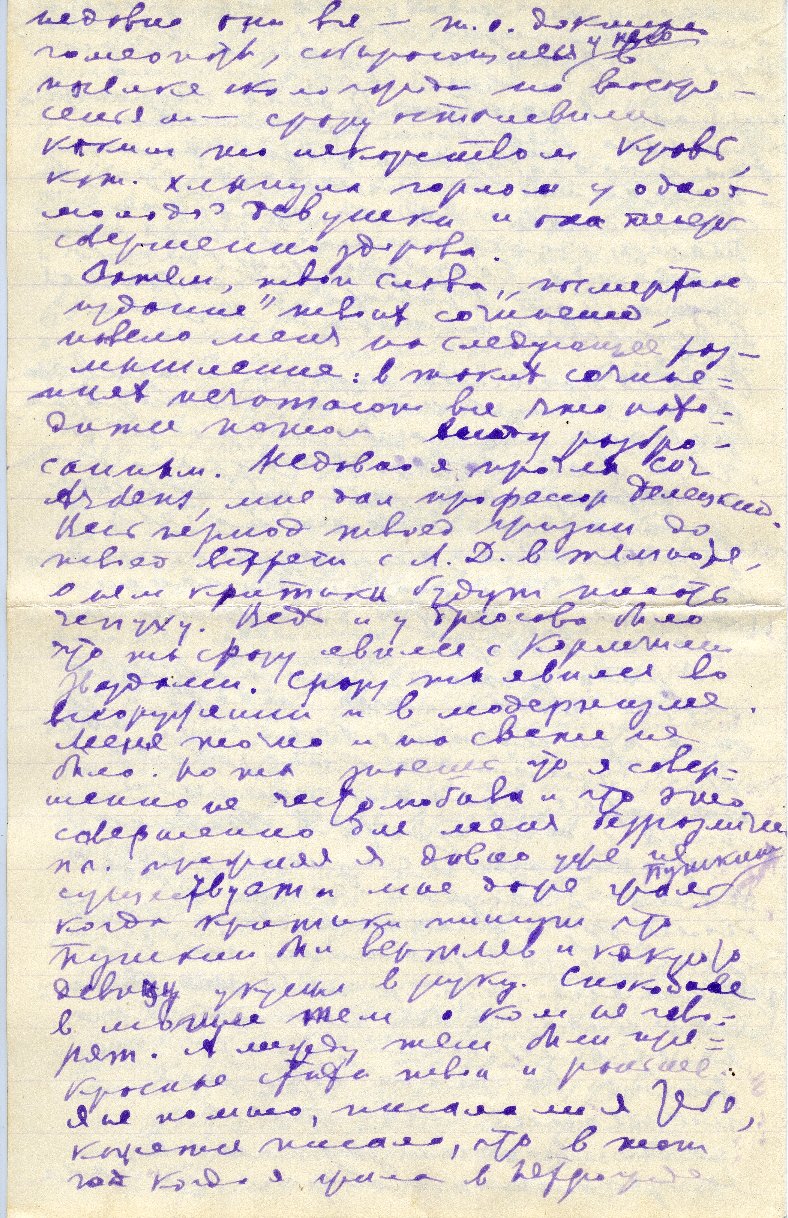 недавно они все — т. е. доктора
гомеопаты, собирающиеся у него в
поселке около города по воскре-
сеньям — сразу остановили
каким то лекарством кровь,
кот. хлынула горлом у одной
молодой девушки и она теперь
совершенно здорова.
Затем, твои слова, „посмертное
издание" твоих сочинений,
навело меня на следующее раз-
мышление: в таких сочине-
ниях печатают все что нахо-
дится потом разбро-
санным. Недавно я прочла соч
Ardens, мне дал профессор Делецкий.
Весь период твоей жизни до
твоей встречи с Л. Д. в темноте,
о нем критики будут писать
чепуху. Ведь и у Брюсова было
что ты сразу явился с Кормчими
Звездами. Сразу ты явился во
всеоружии и в модернизме.
Меня точно и на свете не
было. Но ты знаешь что я совер-
шенно не честолюбива и что это
совершенно для меня безразлично
п. ч. прежняя я давно уже не
существует и мне даже жаль Пушкина
когда критики пишут что
Пушкин был вертляв и какую то
девицу укусил в руку. Спокойнее
в могиле тем о ком не гово-
рят. А между тем были пре-
красные стихи твои и раньше.
Я не помню, писала ли я тебе,
кажется писала, что в тот
год когда я жила в Петрограде